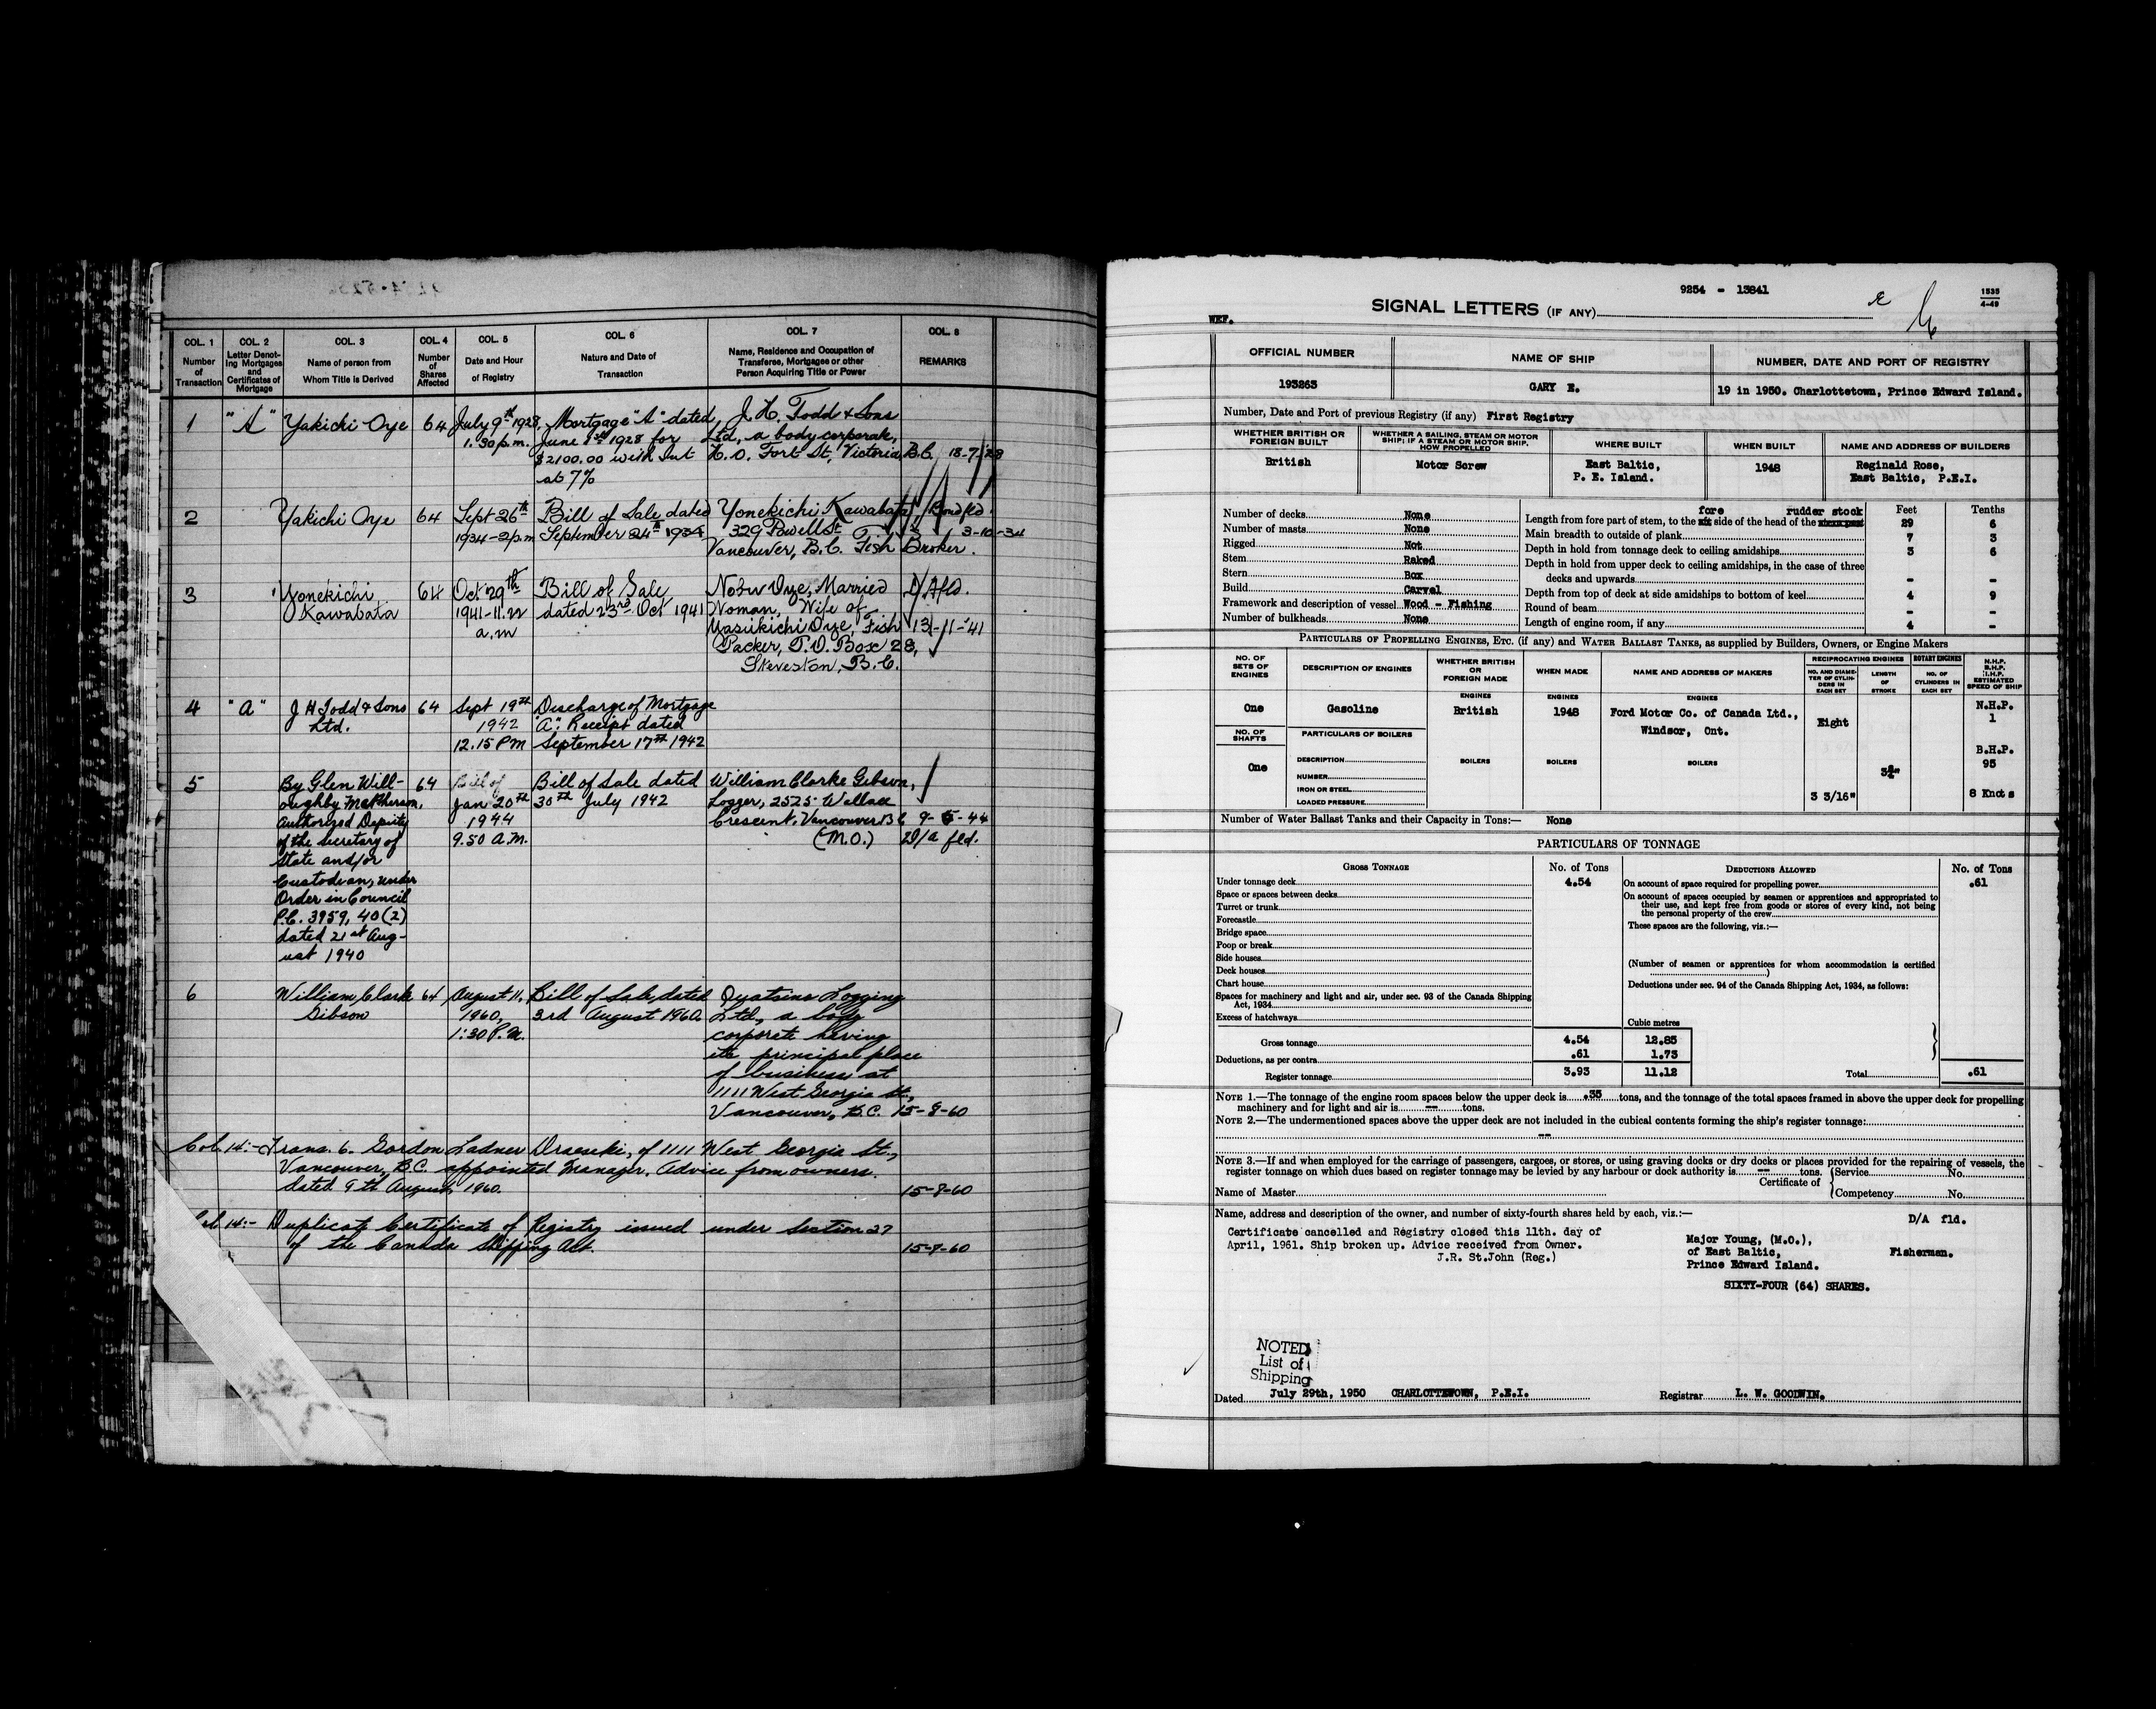 COL. 1 COL. 2 COL. 3 COL. 4 COL. 5 COL. 6 COL. 7 COL. 8
Number of Transaction
Letter Denoting Mortgages and Certificates of Mortgage
Name of person from Whom Title is Derived
Number of Shares Affected
Date and Hour of Registry
Nature and Date of Transaction
Name, Residence and Occupation of Transferee, Mortgagee or other Person Acquiring Title or Power
REMARKS
1 "A" Yakichi Oye 64 July 9th 1928, Mortgage "A" dated J. H. Todd & Sons
1.30 p.m. June 1st 1928 for Ltd, a body corporate,
$2100.00 with Int H.O. Fort St, Victoria, B.C. 18-7-28
at 7%
2 Yakichi Oye 64 Sept 26th Bill of Sale dated Yonekichi Kawabata
1934-2p.m September 24th 1934 329 Powell St 3-10-34
Vancouver, B.C. Fish Broker.
3 Yonekichi 64 Oct 29th Bill of Sale Nobu Oye, Married D/A fld.
Kawabata 1941-11.22 dated 23rd Oct 1941 Woman, Wife of
a.m Yasukichi Oye, Fish 13-11-'41
Packer, P.O. Box 28,
Steveston, B.C.
4 "A" J H Todd & Sons 64 Sept 19th Discharge of Mortgage
Ltd. 1942 "A". Receipt dated
12.15 PM September 17th 1942
5 By Glen Will- 64 Bill of Bill of Sale dated William Clarke Gibson,
oughby McPherson, Jan 20th 30th July 1942 Logger, 2525 Wallace
Authorized Deputy 1944 Crescent, Vancouver B C 9-5-44
of the Secretary of 9.50 A.M. (M.O.) D/A fld.
State and/or
Custodian, under
Order in Council
P.C. 3959, 40(2)
dated 21st Aug-
ust 1940
6 William Clark 64 August 11, Bill of Sale, dated Oyatsino Logging
Gibson 1960, 3rd August 1960. Ltd., a body
1:30 P.M. corporate having
its principal place
of business at
1111 West Georgia St.,
Vancouver, B.C. 15-8-60
Col. 14:- Trans. 6. Gordon Ladner of 1111 West Georgia St.,
Vancouver, B.C. appointed Manager. Advice from owners.
dated 9th August, 1960. 15-8-60
Col 14:- Duplicate Certificate of Registry issued under Section 27
of the Canada Shipping Act. 15-8-60
9254 - 13841
1535
4-49
WEF.
SIGNAL LETTERS (IF ANY)
OFFICIAL NUMBER NAME OF SHIP NUMBER, DATE AND PORT OF REGISTRY
193263 GARY E. 19 in 1950. Charlottetown, Prince Edward Island.
Number, Date and Port of previous Registry (if any) First Registry
WHETHER BRITISH OR FOREIGN BUILT
WHETHER A SAILING, STEAM OR MOTOR SHIP; IF A STEAM OR MOTOR SHIP, HOW PROPELLED
WHERE BUILT WHEN BUILT NAME AND ADDRESS OF BUILDERS
British Motor Screw East Baltic, 1948 Reginald Rose,
P. E. Island. East Baltic, P.E.I.
fore rudder stock Feet Tenths
Number of decks None
Length from fore part of stem, to the aft side of the head of the 29 6
Number of masts None
Main breadth to outside of plank 7 3
Rigged Not
Depth in hold from tonnage deck to ceiling amidships 3 6
Stem Raked
Depth in hold from upper deck to ceiling amidships, in the case of three
Stern Box
decks and upwards - -
Build Carvel
Depth from top of deck at side amidships to bottom of keel 4 9
Framework and description of vessel Wood - Fishing
Round of beam - -
Number of bulkheads None
Length of engine room, if any 4 -
PARTICULARS OF PROPELLING ENGINES, ETC. (if any) and WATER BALLAST TANKS, as supplied by Builders, Owners, or Engine Makers
NO. OF SETS OF ENGINES
DESCRIPTION OF ENGINES
WHETHER BRITISH OR FOREIGN MADE
WHEN MADE
NAME AND ADDRESS OF MAKERS
RECIPROCATING ENGINES ROTARY ENGINES
NO. AND DIAMETER OF CYLINDERS IN EACH SET
LENGTH OF STROKE
NO. OF CYLINDERS IN EACH SET
N.H.P. B.H.P. I.H.P. ESTIMATED SPEED OF SHIP
ENGINES ENGINES ENGINES
One Gasoline British 1948 Ford Motor Co. of Canada Ltd., Eight N.H.P.
Windsor, Ont. 1
NO. OF SHAFTS PARTICULARS OF BOILERS
B.H.P.
One DESCRIPTION BOILERS BOILERS BOILERS 95
NUMBER 3¾"
IRON OR STEEL
LOADED PRESSURE 3 3/16" 8 Knots
Number of Water Ballast Tanks and their Capacity in Tons:— None
PARTICULARS OF TONNAGE
GROSS TONNAGE No. of Tons DEDUCTIONS ALLOWED No. of Tons
Under tonnage deck 4.54 On account of space required for propelling power .61
Space or spaces between decks
On account of spaces occupied by seamen or apprentices and appropriated to
their use, and kept free from goods or stores of every kind, not being
the personal property of the crew
Turret or trunk
Forecastle
These spaces are the following, viz.:—
Bridge space
Poop or break
Side houses
(Number of seamen or apprentices for whom accommodation is certified )
Deck houses
Chart house
Deductions under sec. 94 of the Canada Shipping Act, 1934, as follows:
Spaces for machinery and light and air, under sec. 93 of the Canada Shipping
Act, 1934
Excess of hatchways
Cubic metres
Gross tonnage 4.54 12.85
Deductions, as per contra .61 1.73
Register tonnage 3.93 11.12 Total .61
NOTE 1.—The tonnage of the engine room spaces below the upper deck is .35 tons, and the tonnage of the total spaces framed in above the upper deck for propelling
machinery and for light and air is -- tons.
NOTE 2.—The undermentioned spaces above the upper deck are not included in the cubical contents forming the ship's register tonnage:
--
NOTE 3.—If and when employed for the carriage of passengers, cargoes, or stores, or using graving docks or dry docks or places provided for the repairing of vessels, the
register tonnage on which dues based on register tonnage may be levied by any harbour or dock authority is -- tons.
Name of Master Certificate of Service No.
Competency No.
Name, address and description of the owner, and number of sixty-fourth shares held by each, viz.:—
D/A fld.
Certificate cancelled and Registry closed this 11th. day of
April, 1961. Ship broken up. Advice received from Owner.
J.R. St.John (Reg.)
Major Young, (M.O.),
of East Baltic, Fisherman.
Prince Edward Island.
SIXTY-FOUR (64) SHARES.
NOTED
List of
Shipping
Dated July 29th, 1950 CHARLOTTETOWN, P.E.I. Registrar L. W. GOODWIN.